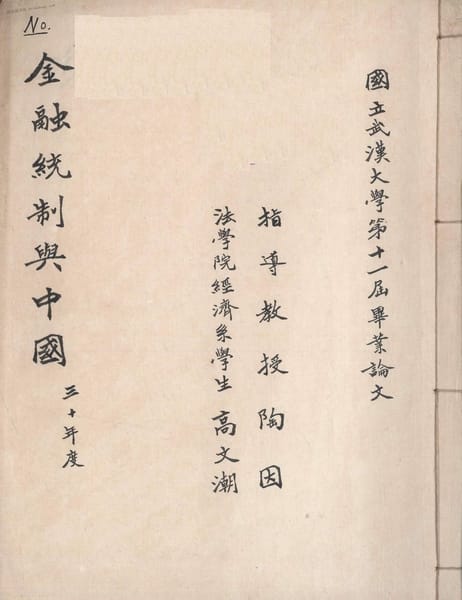 國立武漢大學第十一屆畢業論文
指導教授陶因
法學院經濟系學生高文潮
金融統制與中國
三十年度
No.